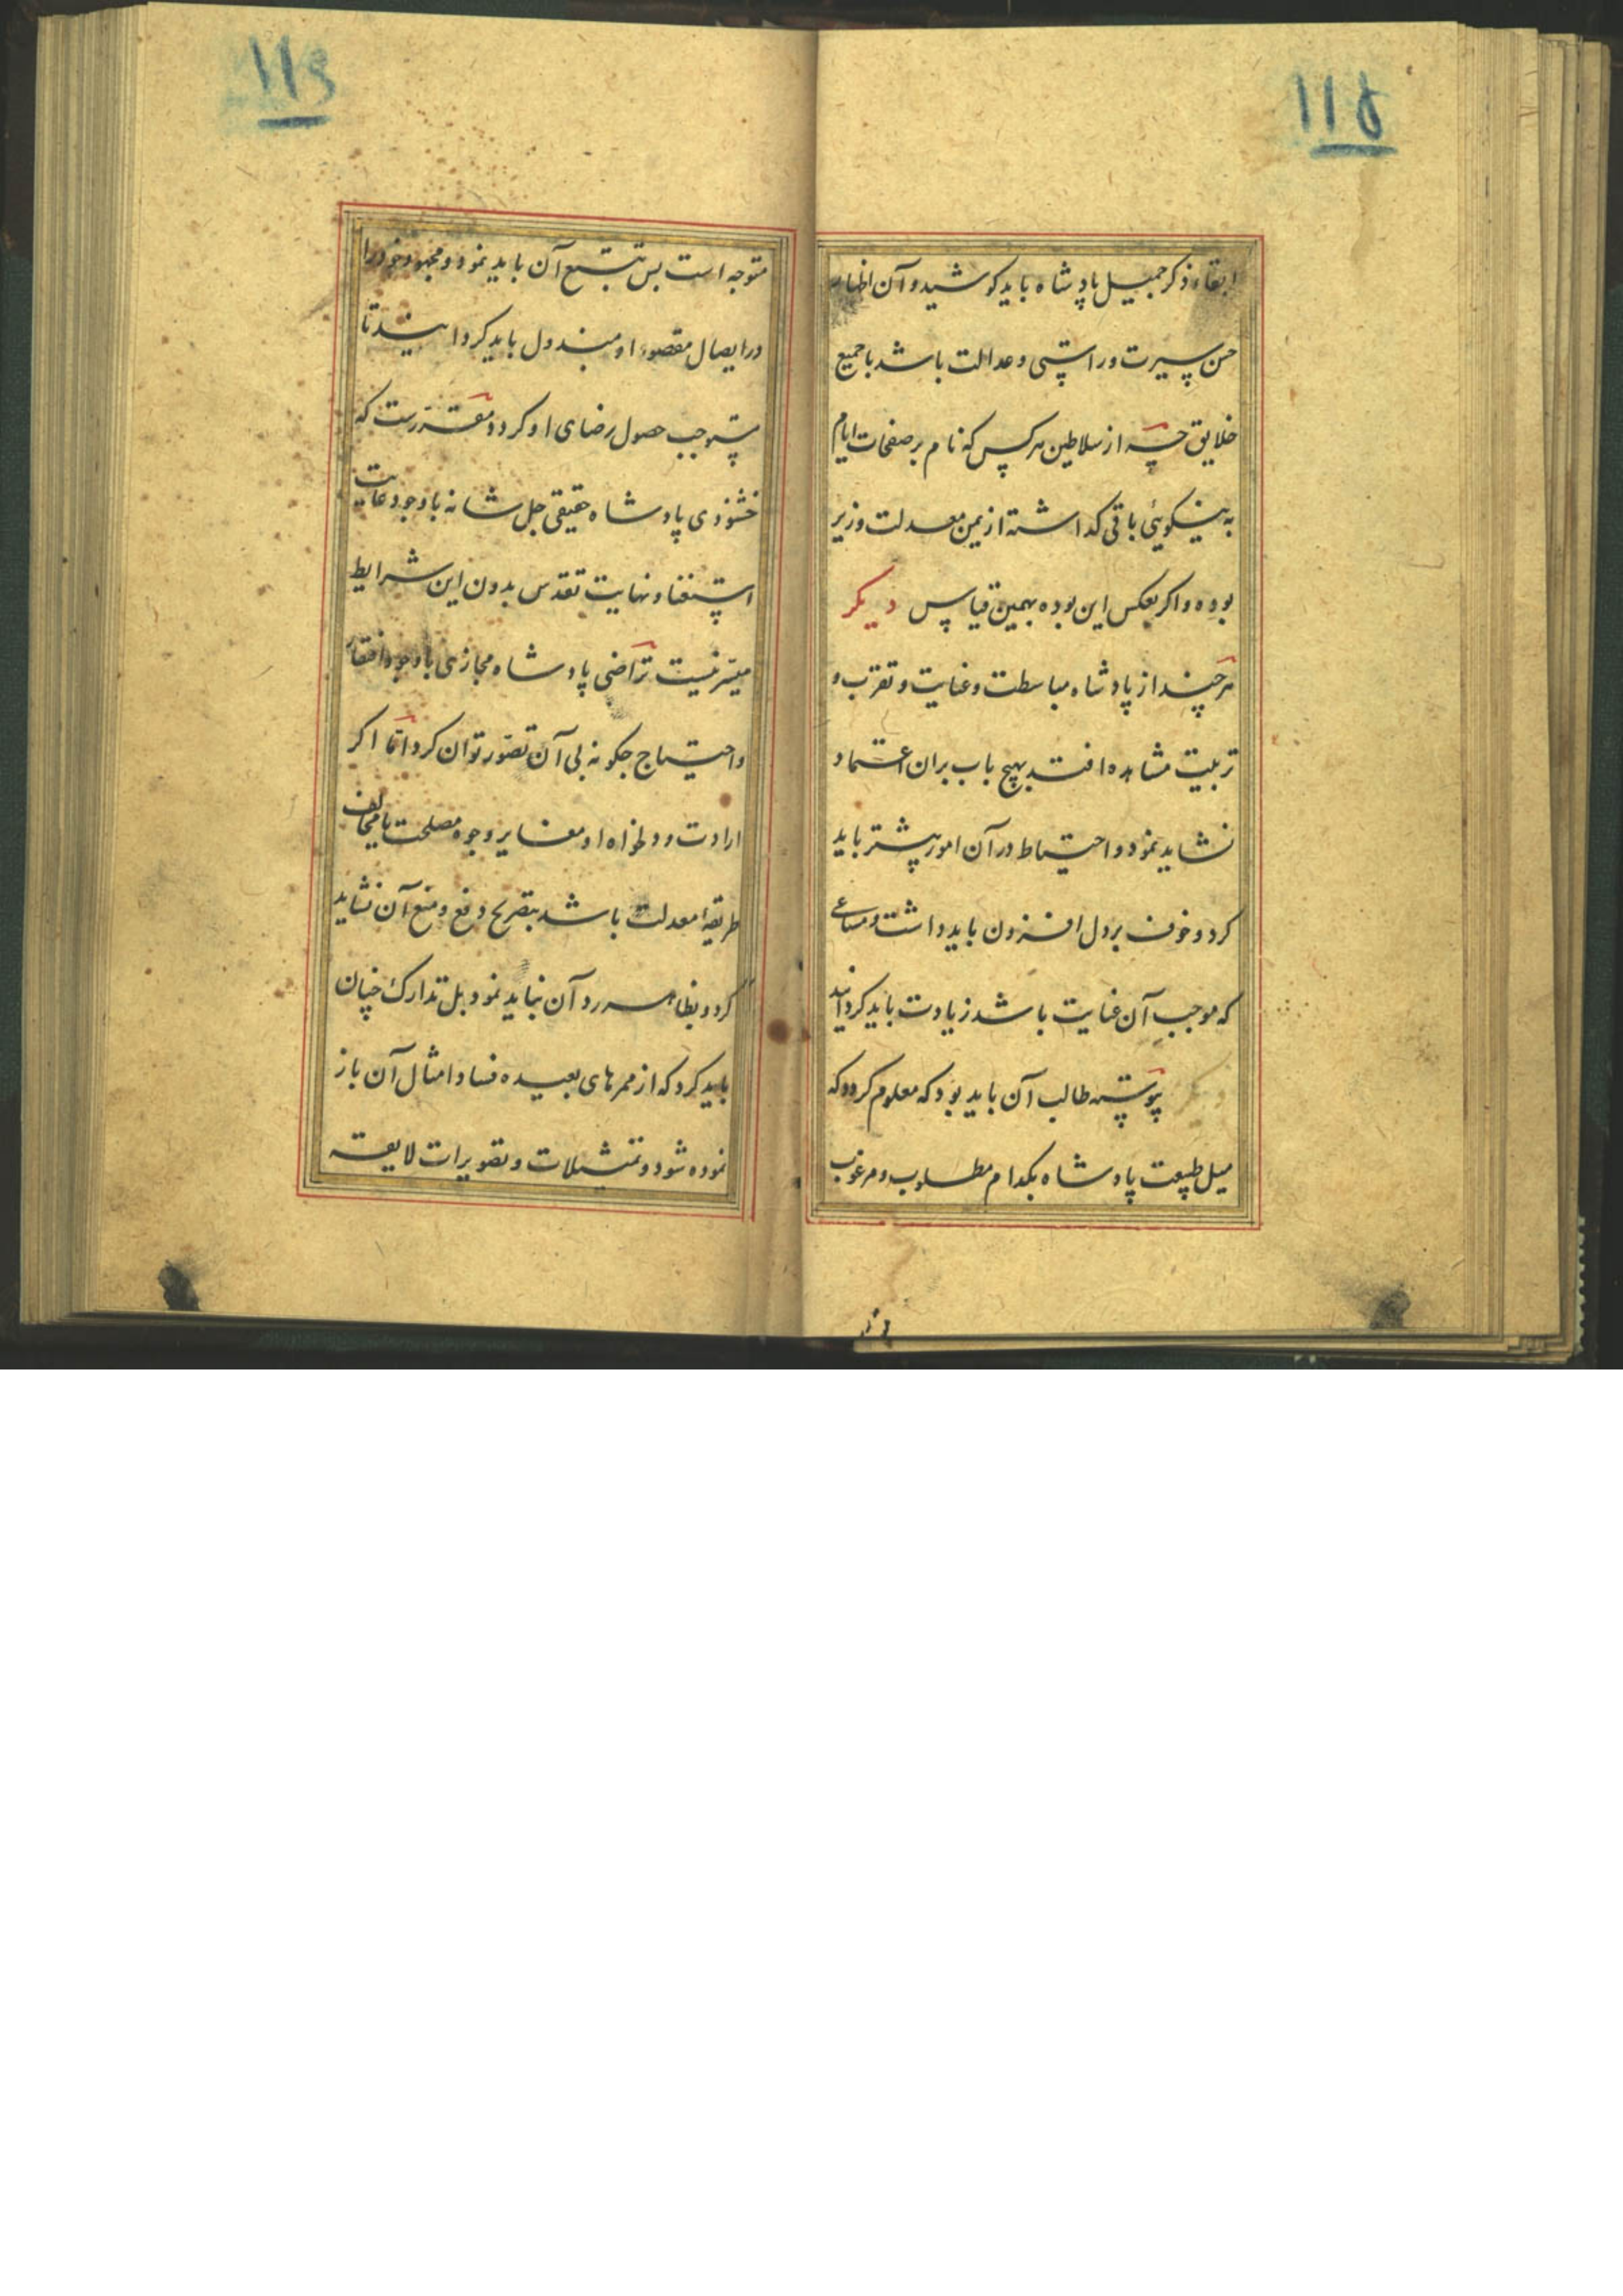 ۱۱۵
ابقاء ذکر جمیل پادشاه باید کوشید و آن اظهار
حسن سیرت و راستی و عدالت باشد با جمیع
خلایق چه از سلاطین هرکس که نام بر صفحات ایام
به نیکویئی باقی کداشته از یمن معدلت وزیر
بوده و اکر بعکس این بوده بهمین قیاس دیکر
هرچند از پادشاه مباسطت و عنایت و تقرب و
تربیت مشاهده افتد بهیچ باب بران اعتماد
نشاید نمود و احتیاط در آن امور پیشتر باید
کرد و خوف بر دل افزون باید داشت و مساعی
که موجب آن عنایت باشد زیادت باید کردانید
دیکر پیوسته طالب آن باید بود که معلوم کردد که
میل طبیعت پادشاه بکدام مطلوب و مرغوب
۱۱۶
متوجه است بس تتبع آن باید نمود و مجهود خود را
در ایصال مقصود او مبذول باید کردانید تا
مستوجب حصول رضای او کردد مقررست که
خشنودی پادشاه حقیقی جل شانه با وجود غایت
استغنا و نهایت تقدس بدون این شرایط
میسر نیست تراضی پادشاه مجازی با وجود افتقار
و احتیاج جکونه بی آن تصور توان کرد اما اکر
ارادت و دلخواه او مغایر وجوه مصلحت یا مخالف
طریقه معدلت باشد بتصریح دفع و منع آن نشاید
کرد و بظاهر رد آن نباید نمود بل تدارک چنان
باید کرد که از ممرهای بعیده فساد امثال آن باز
نموده شود و تمثیلات و تصویرات لایقه